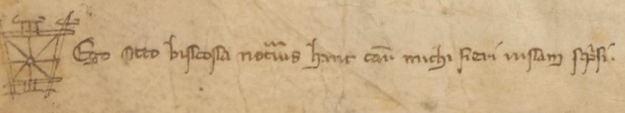 Ego Otto bissossa notariꝰ hanc cartā michi fieri iussam scͥpsi.